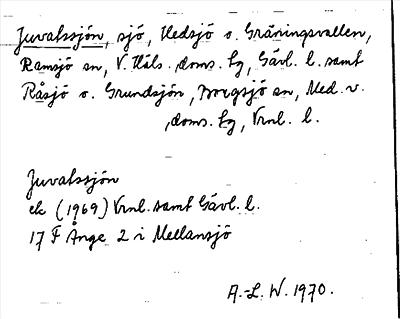 Juvatssjön, sjö, Hedsjö o. Gräningsvallen,
Ramsjö sn, V. Häls. doms. tg, Gävl. l. samt
Råsjö o. Grundsjön, Borgsjö sn, Med. v.
doms. tg, Vrnl. l.
Juvatssjön
ek (1969) Vrnl. samt Gävl. l.
17 F Ånge 2 i Mellansjö
A.-L. W. 1970.